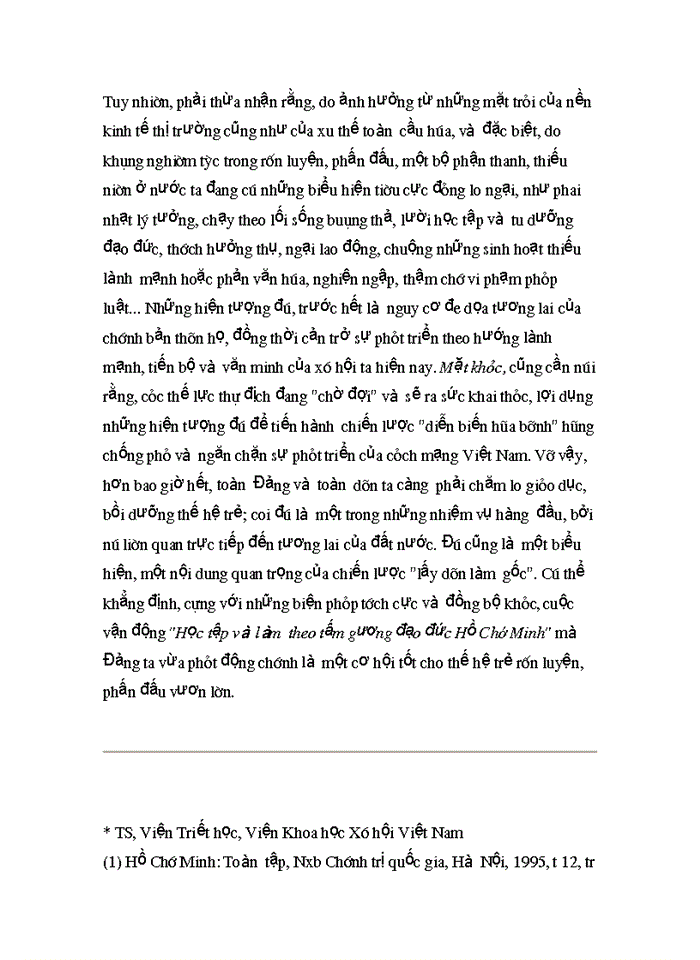 Tuy nhiờn, phải thừa nhận rằng, do ảnh hưởng từ những mặt trỏi của nền
kinh tế thị trường cũng như của xu thế toàn cầu húa, và đặc biệt, do
khụng nghiờm tỳc trong rốn luyện, phấn đấu, một bộ phận thanh, thiếu
niờn ở nước ta đang cú những biểu hiện tiờu cực đỏng lo ngại, như phai
nhạt lý tưởng, chạy theo lối sống buụng thả, lười học tập và tu dưỡng
đạo đức, thớch hưởng thụ, ngại lao động, chuộng những sinh hoạt thiếu
lành mạnh hoặc phản văn húa, nghiện ngập, thậm chớ vi phạm phỏp
luật... Những hiện tượng đú, trước hết là nguy cơ đe dọa tương lai của
chớnh bản thõn họ, đồng thời cản trở sự phỏt triển theo hướng lành
mạnh, tiến bộ và văn minh của xó hội ta hiện nay. Mặt khỏc, cũng cần núi
rằng, cỏc thế lực thự địch đang "chờ đợi" và sẽ ra sức khai thỏc, lợi dụng
những hiện tượng đú để tiến hành chiến lược "diễn biến hũa bỡnh" hũng
chống phỏ và ngăn chặn sự phỏt triển của cỏch mạng Việt Nam. Vỡ vậy,
hơn bao giờ hết, toàn Đảng và toàn dõn ta càng phải chăm lo giỏo dục,
bồi dưỡng thế hệ trẻ; coi đú là một trong những nhiệm vụ hàng đầu, bởi
nú liờn quan trực tiếp đến tương lai của đất nước. Đú cũng là một biểu
hiện, một nội dung quan trọng của chiến lược "lấy dõn làm gốc". Cú thể
khẳng định, cựng với những biện phỏp tớch cực và đồng bộ khỏc, cuộc
vận động "Học tập và làm theo tấm gương đạo đức Hồ Chớ Minh" mà
Đảng ta vừa phỏt động chớnh là một cơ hội tốt cho thế hệ trẻ rốn luyện,
phấn đấu vươn lờn.
* TS, Viện Triết học, Viện Khoa học Xó hội Việt Nam
(1) Hồ Chớ Minh: Toàn tập, Nxb Chớnh trị quốc gia, Hà Nội, 1995, t 12, tr